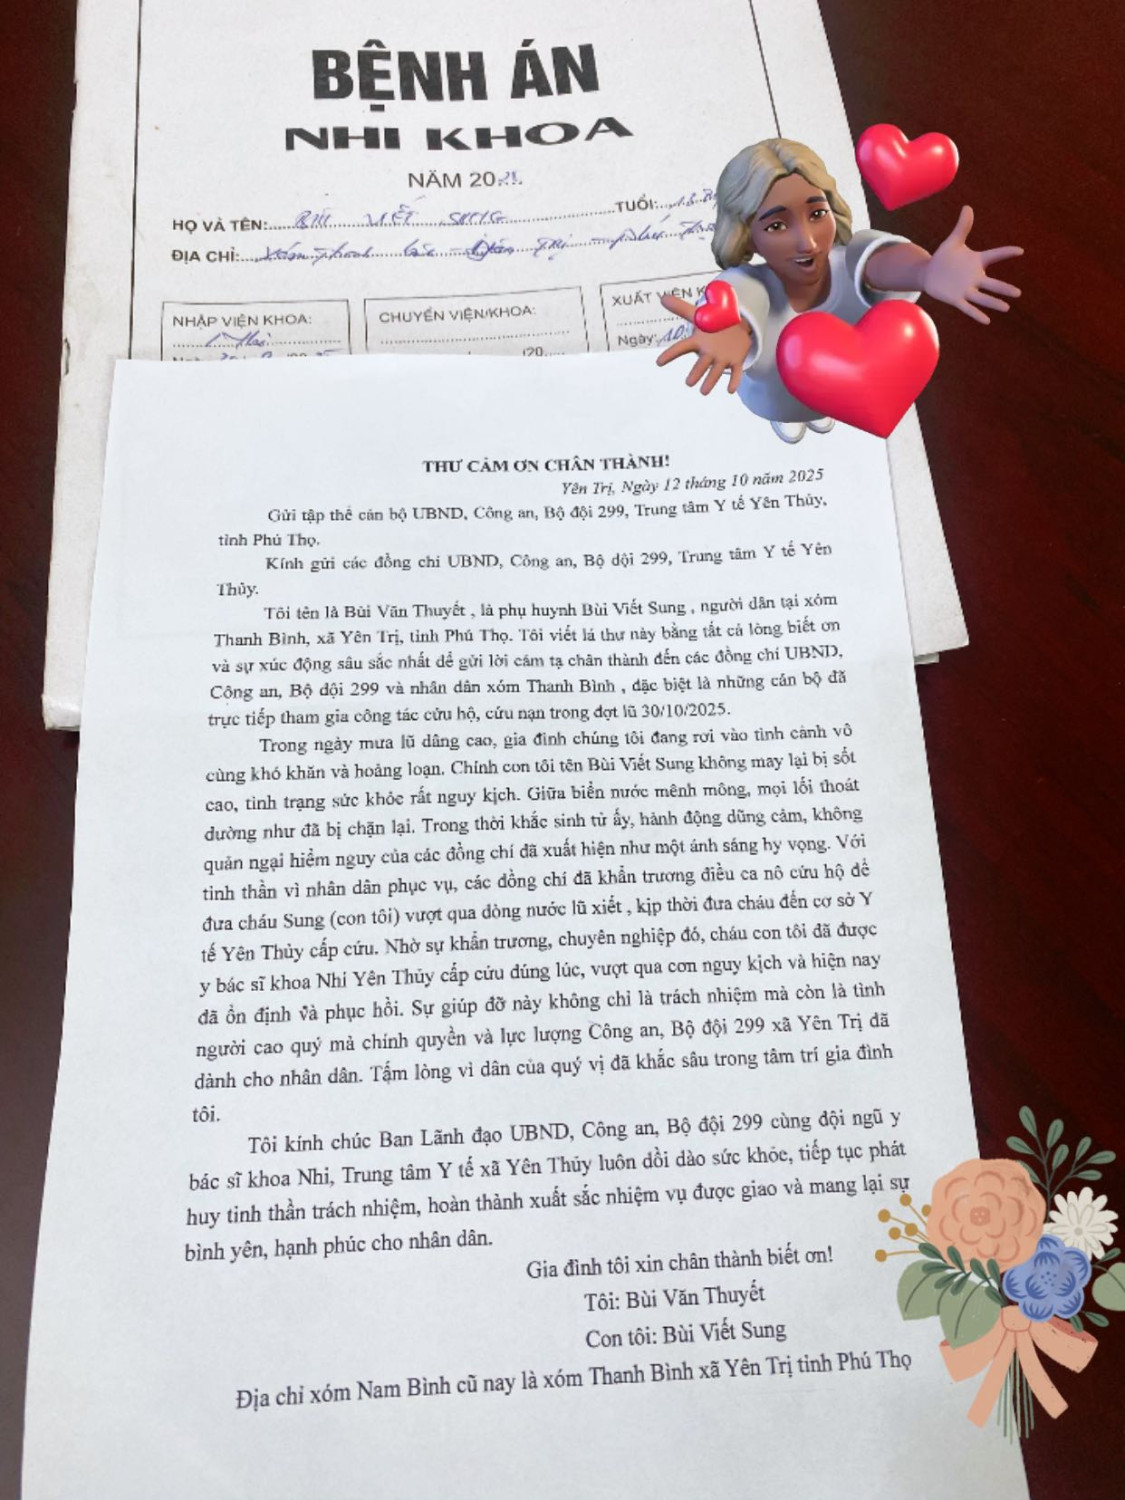 BỆNH ÁN
NHI KHOA
NĂM 20
HỌ VÀ TÊN: BÙI VIẾT SUNG TUỔI:
ĐỊA CHỈ: Xóm Thanh
NHẬP VIỆN KHOA:
Nhi
CHUYỂN VIỆN/KHOA:
/20
XUẤT VIỆN
Ngày:
THƯ CẢM ƠN CHÂN THÀNH!
Yên Trị, Ngày 12 tháng 10 năm 2025
Gửi tập thể cán bộ UBND, Công an, Bộ đội 299, Trung tâm Y tế Yên Thủy,
tỉnh Phú Thọ.
Kính gửi các đồng chí UBND, Công an, Bộ đội 299, Trung tâm Y tế Yên
Thủy.
Tôi tên là Bùi Văn Thuyết , là phụ huynh Bùi Viết Sung , người dân tại xóm
Thanh Bình, xã Yên Trị, tỉnh Phú Thọ. Tôi viết lá thư này bằng tất cả lòng biết ơn
và sự xúc động sâu sắc nhất để gửi lời cảm tạ chân thành đến các đồng chí UBND,
Công an, Bộ đội 299 và nhân dân xóm Thanh Bình , đặc biệt là những cán bộ đã
trực tiếp tham gia công tác cứu hộ, cứu nạn trong đợt lũ 30/10/2025.
Trong ngày mưa lũ dâng cao, gia đình chúng tôi đang rơi vào tình cảnh vô
cùng khó khăn và hoảng loạn. Chính con tôi tên Bùi Viết Sung không may lại bị sốt
cao, tình trạng sức khỏe rất nguy kịch. Giữa biển nước mênh mông, mọi lối thoát
dường như đã bị chặn lại. Trong thời khắc sinh tử ấy, hành động dũng cảm, không
quản ngại hiểm nguy của các đồng chí đã xuất hiện như một ánh sáng hy vọng. Với
tinh thần vì nhân dân phục vụ, các đồng chí đã khẩn trương điều ca nô cứu hộ để
đưa cháu Sung (con tôi) vượt qua dòng nước lũ xiết , kịp thời đưa cháu đến cơ sở Y
tế Yên Thủy cấp cứu. Nhờ sự khẩn trương, chuyên nghiệp đó, cháu con tôi đã được
y bác sĩ khoa Nhi Yên Thủy cấp cứu đúng lúc, vượt qua cơn nguy kịch và hiện nay
đã ổn định và phục hồi. Sự giúp đỡ này không chỉ là trách nhiệm mà còn là tình
người cao quý mà chính quyền và lực lượng Công an, Bộ đội 299 xã Yên Trị đã
dành cho nhân dân. Tấm lòng vì dân của quý vị đã khắc sâu trong tâm trí gia đình
tôi.
Tôi kính chúc Ban Lãnh đạo UBND, Công an, Bộ đội 299 cùng đội ngũ y
bác sĩ khoa Nhi, Trung tâm Y tế xã Yên Thủy luôn dồi dào sức khỏe, tiếp tục phát
huy tinh thần trách nhiệm, hoàn thành xuất sắc nhiệm vụ được giao và mang lại sự
bình yên, hạnh phúc cho nhân dân.
Gia đình tôi xin chân thành biết ơn!
Tôi: Bùi Văn Thuyết
Con tôi: Bùi Viết Sung
Địa chỉ xóm Nam Bình cũ nay là xóm Thanh Bình xã Yên Trị tỉnh Phú Thọ